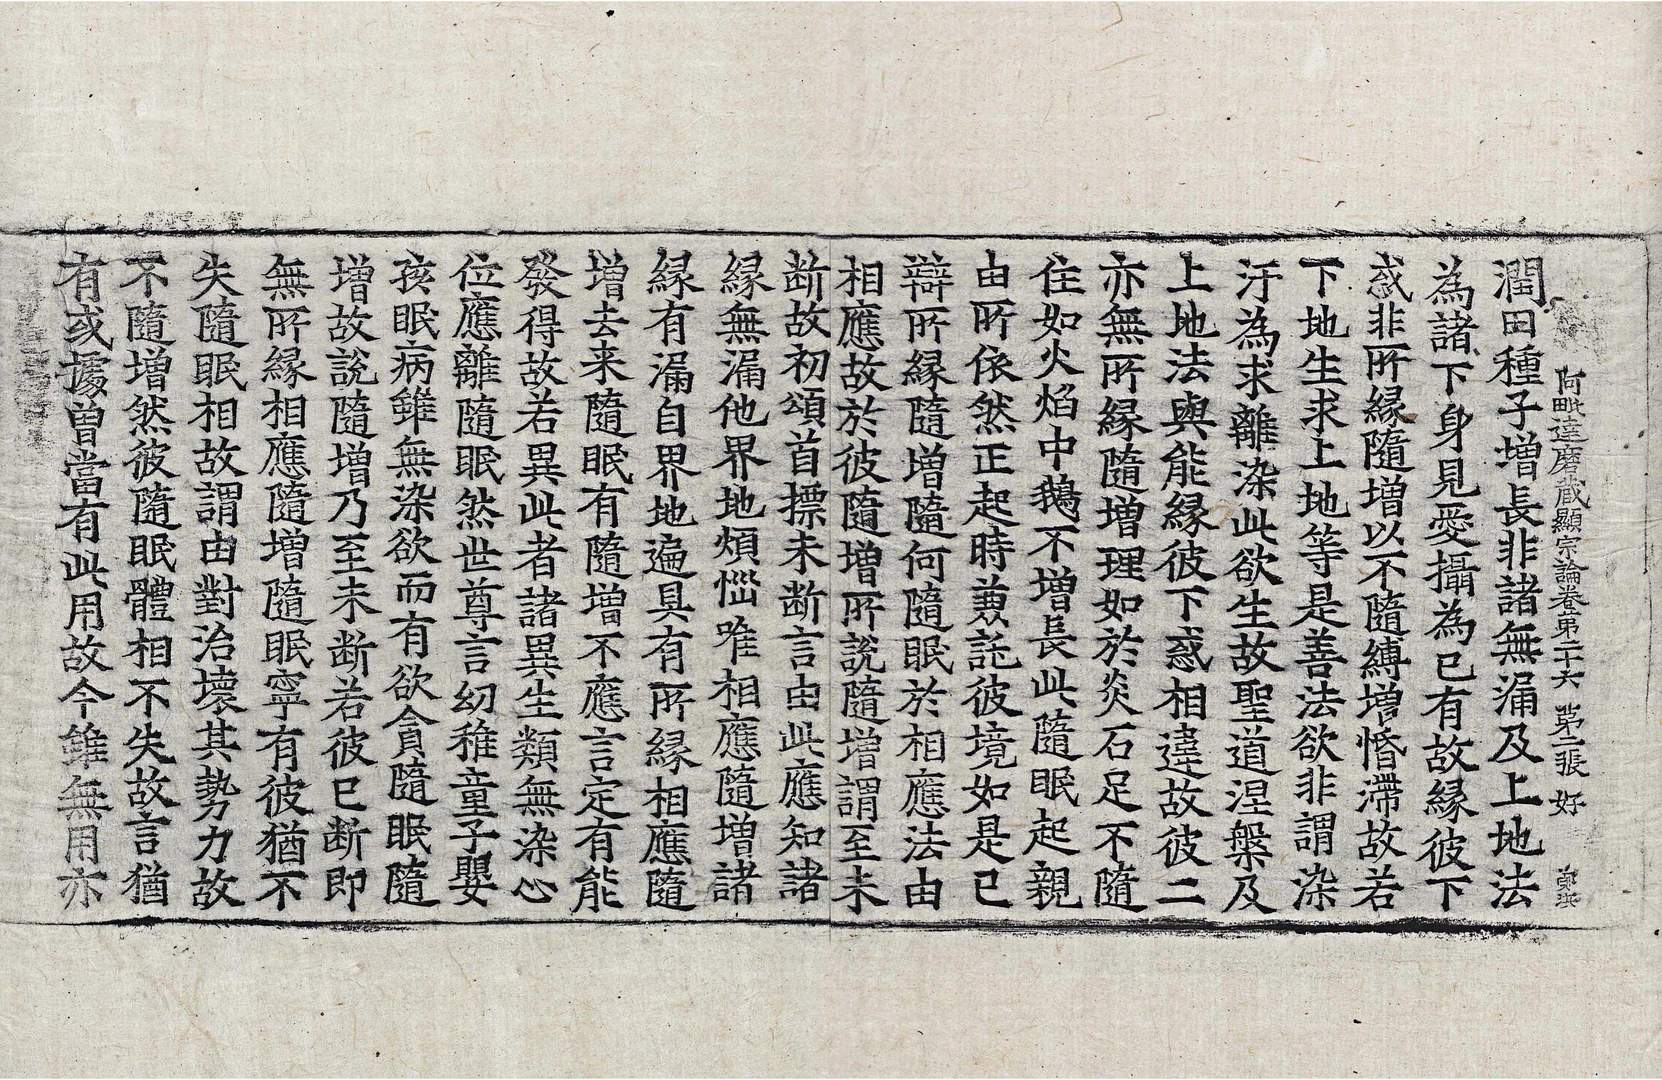 阿毗達磨藏顯宗論卷第二十六 第二張 好
潤田種子增長非諸無漏及上地法
為諸下身見愛攝為已有故緣彼下
惑非所緣隨增以不隨縛增惛滯故若
下地生求上地等是善法欲非謂染
汙為求離染此欲生故聖道涅槃及
上地法與能緣彼下惑相違故彼二
亦無所緣隨增理如於炎石足不隨
住如火焰中鵝不增長此隨眠起親
由所依然正起時兼託彼境如是已
辯所緣隨增隨何隨眠於相應法由
相應故於彼隨增所說隨增謂至未
斷故初頌首摽未斷言由此應知諸
緣無漏他界地煩惱唯相應隨增諸
緣有漏自界地遍具有所緣相應隨
增去来隨眠有隨增不應言定有能
發得故若異此者諸異生類無染心
位應離隨眠然世尊言幼稚童子嬰
孩眠病雖無染欲而有欲貪隨眠隨
增故說隨增乃至未断若彼已断即
無所緣相應隨增隨眠寧有彼猶不
失隨眠相故謂由對治壞其勢力故
不隨增然彼隨眠體相不失故言猶
有或據曾當有此用故今雖無用亦